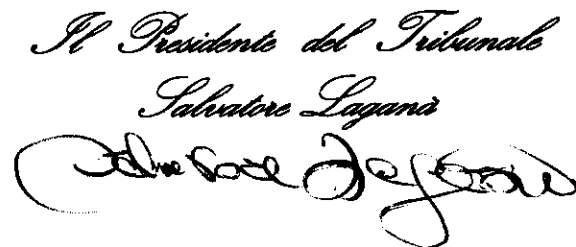 Il Presidente del Tribunale
Salvatore Laganà
Salvatore Laganà